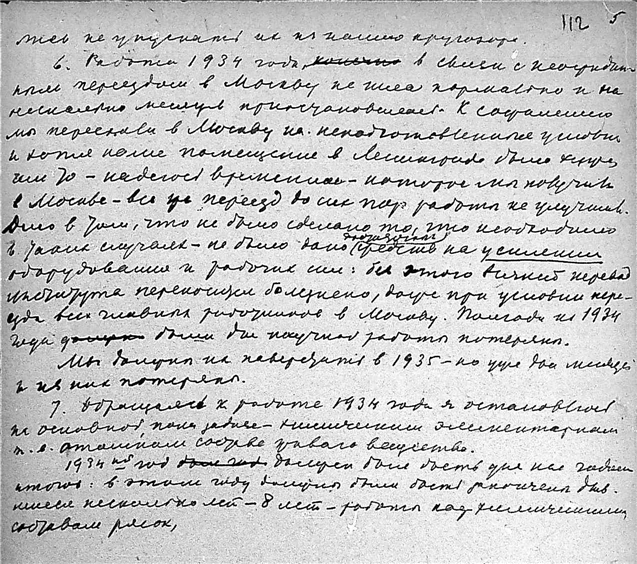 112 5
тись не упускать их из нашего кругозора.
6. Работа 1934 года, конечно в связи с неожидан-
ным переездом в Москву не шла нормально и на
несколько месяцев приостановилась. К сожалению
мы переехали в Москву на неподготовленные условия
и хотя наше помещение в Ленинграде было хуже
чем то – надеюсь временное – которое мы получили
в Москве – все же переезд до сих пор работы не улучшил.
Дело в том, что не было сделано то, что необходимо
в таких случаях – не было дано средств на усиление
оборудования и рабочих сил: без этого всякий перевод
института переносим болезненно, даже при условии пере-
езда всех главных работников в Москву. Полгода из 1934
года должны были для научной работы потеряны.
Мы должны их наверстать в 1935 – но уже два месяца
и из них потеряны.
7. Обращаясь к работе 1934 года я остановлюсь
на основной нашей задаче – химическом элементарном
т.е. атомном составе живого вещества.
1934 ый год должен был дать для нас
итоги: в этом году должны были быть закончены дли-
вшиеся несколько лет – 8 лет – работы над химическим
составом рясок,